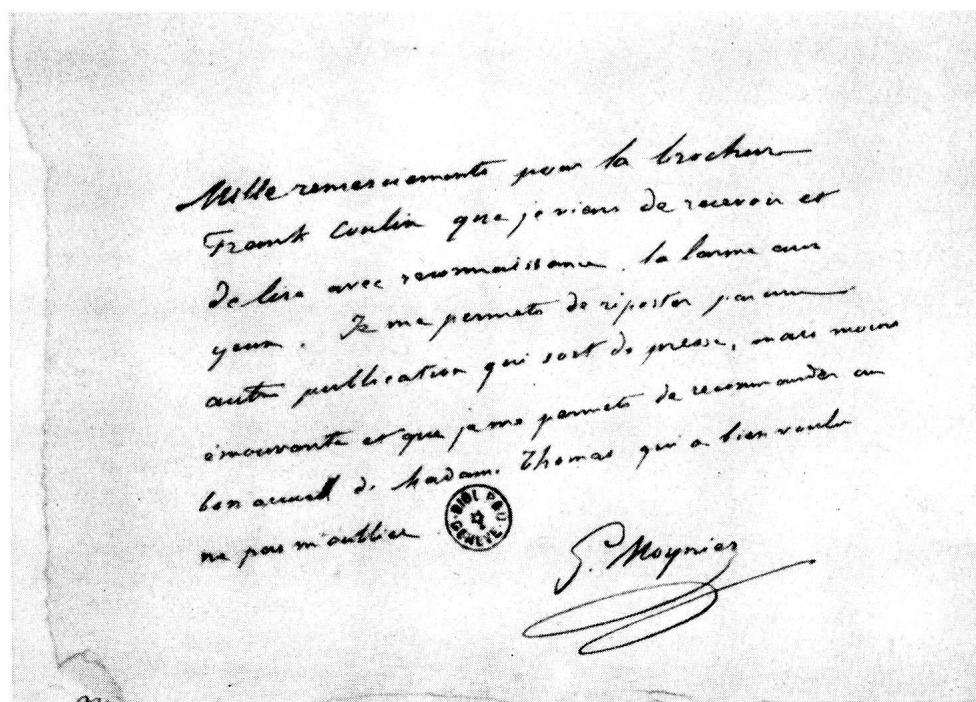 Mille remerciements pour la brochure
Frank Coulin que je viens de recevoir et
de lire avec reconnaissance, la larme aux
yeux. Je me permets de riposter par une
autre publication qui sort de presse, mais moins
émouvante et que je me permets de recommander au
bon accueil de Madame Thomas qui a bien voulu
ne pas m'oublier
BIBL. PBU
GENEVE
G. Moynier